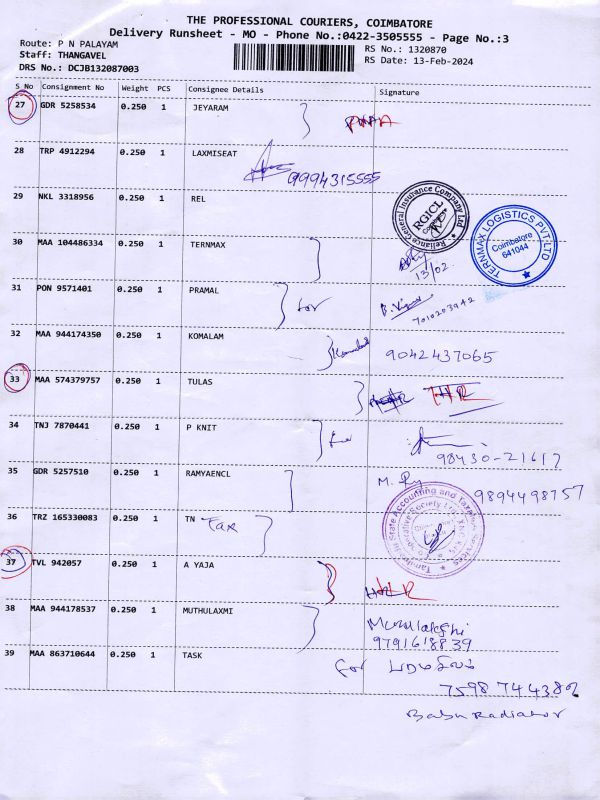 THE PROFESSIONAL COURIERS, COIMBATORE
Delivery Runsheet - MO - Phone No.:0422-3505555 - Page No.:3
Route: P N PALAYAM
RS No.: 1320870
Staff: THANGAVEL
RS Date: 13-Feb-2024
DRS No.: DCJB132087003
S No Consignment No Weight PCS Consignee Details Signature
27 GDR 5258534 0.250 1 JEYARAM
28 TRP 4912294 0.250 1 LAXMISEAT
9994315555
29 NKL 3318956 0.250 1 REL
Reliance General Insurance Company Ltd
RGICL
30 MAA 104486334 0.250 1 TERNMAX
13/02
TERNMAX LOGISTICS PVT LTD
Coimbatore
641044
31 PON 9571401 0.250 1 PRAMAL
for
7010203942
32 MAA 944174350 0.250 1 KOMALAM
9042437065
33 MAA 574379757 0.250 1 TULAS
34 TNJ 7870441 0.250 1 P KNIT
for
98430-21617
35 GDR 5257510 0.250 1 RAMYAENCL
9894498757
36 TRZ 165330083 0.250 1 TN Tax
37 TVL 942057 0.250 1 A YAJA
38 MAA 944178537 0.250 1 MUTHULAXMI
9791618839
39 MAA 863710644 0.250 1 TASK
for
7598744382
Babu Radiator